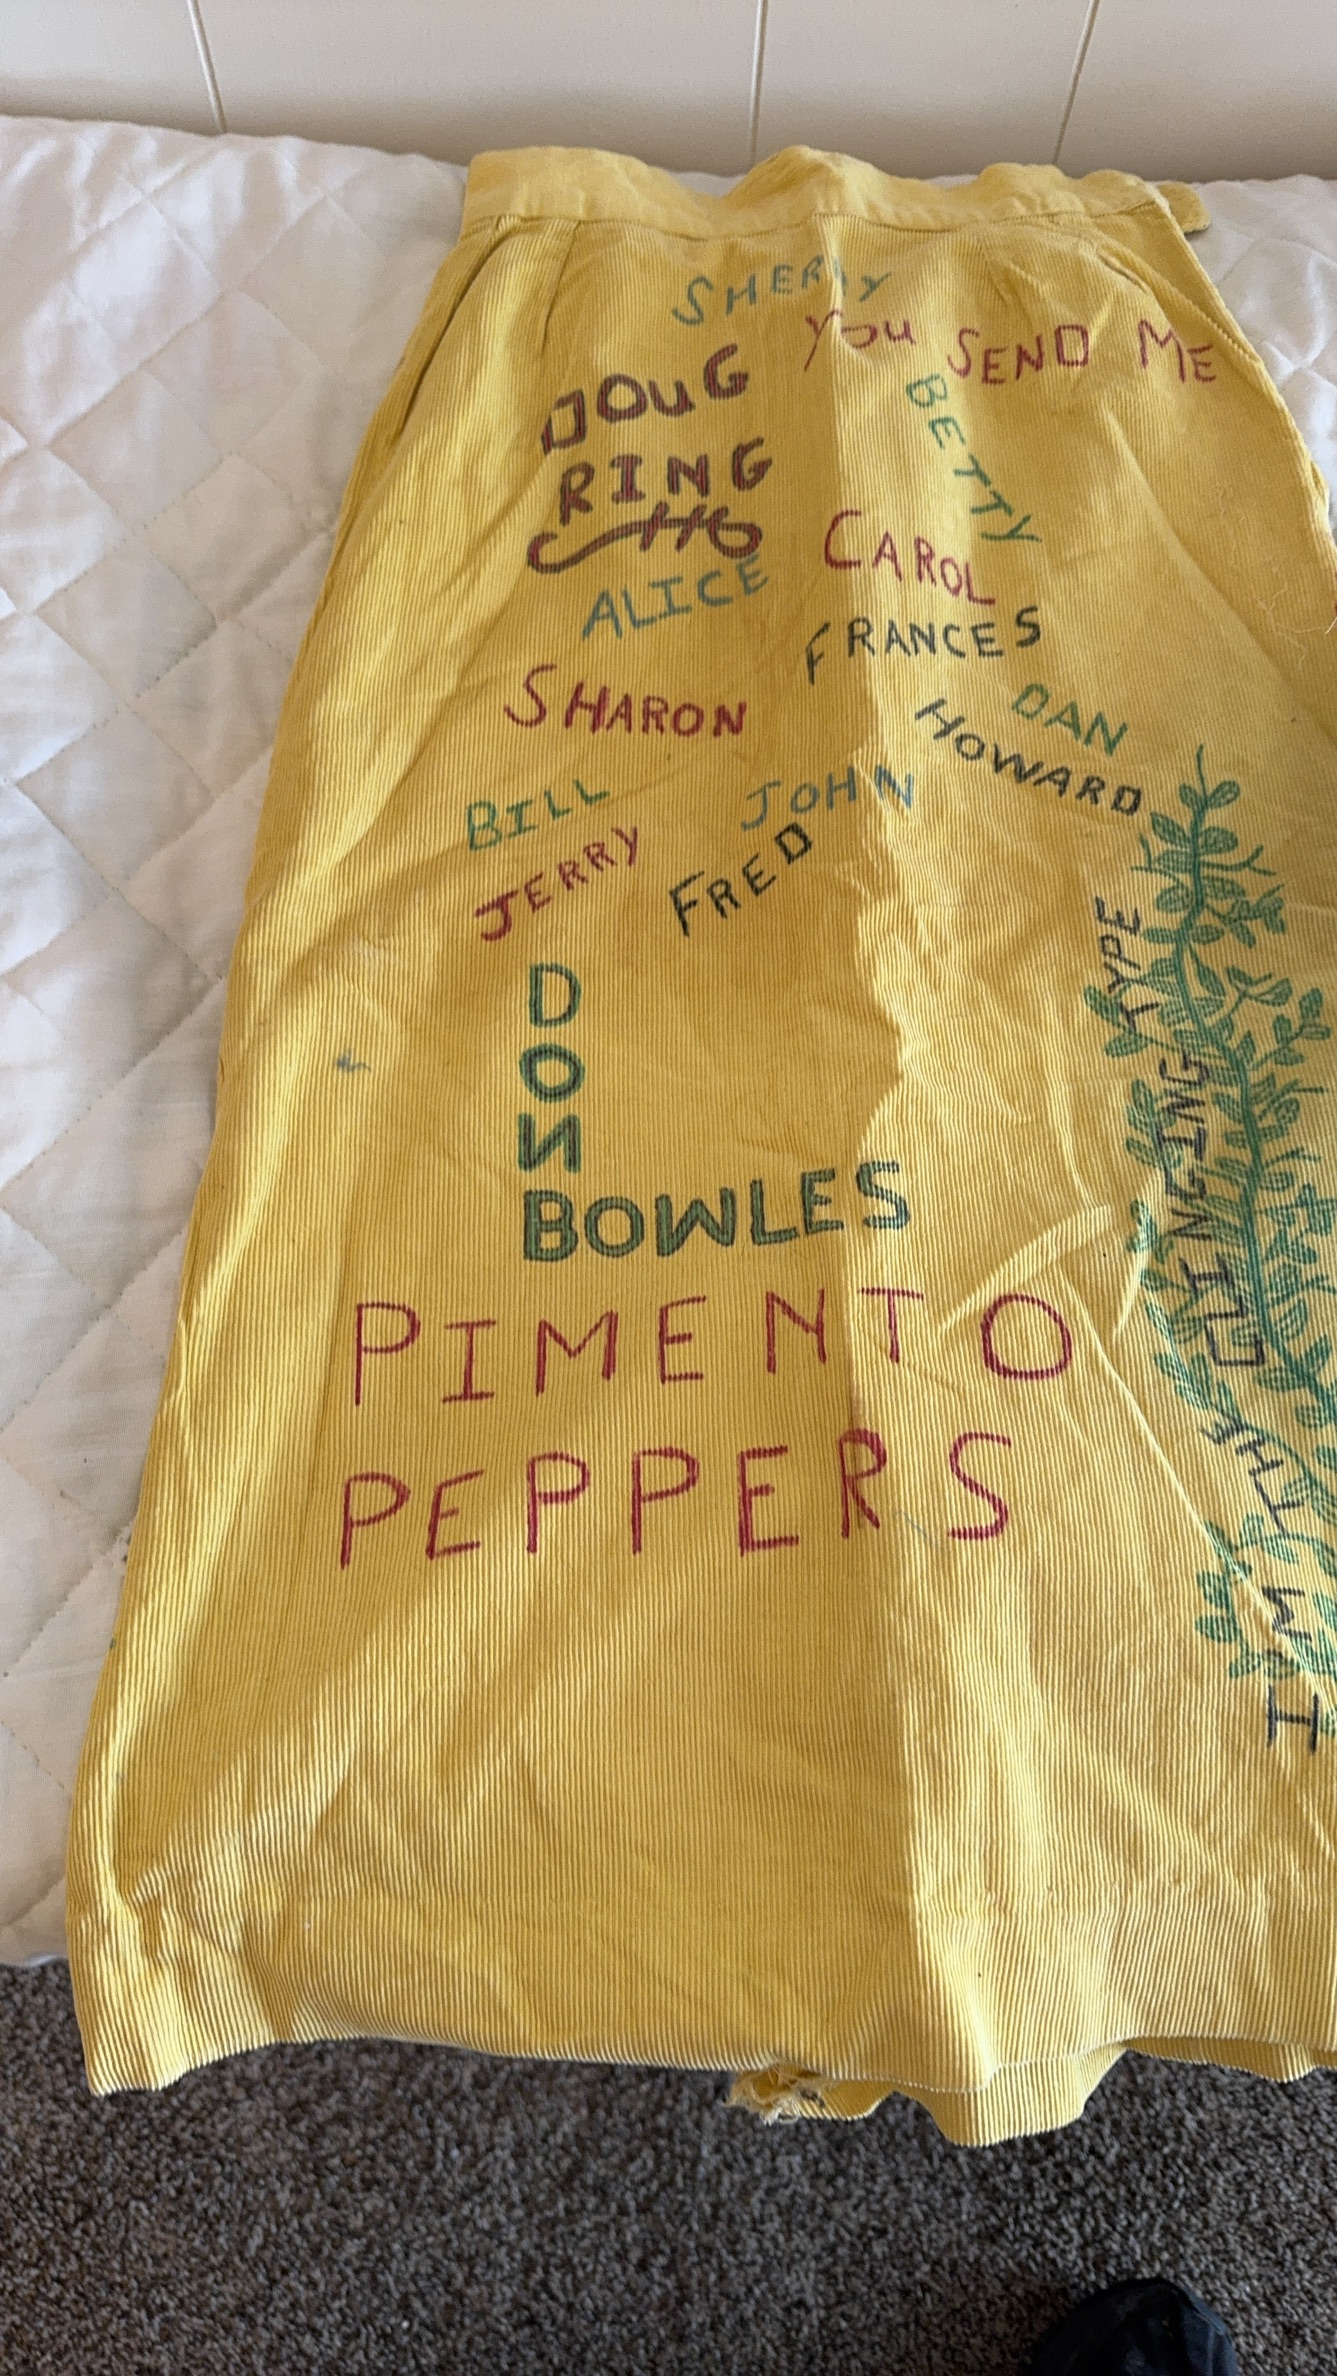 SHERRY
YOU SEND ME
DOUG
RING
BETTY
CAROL
ALICE
FRANCES
SHARON
DAN
HOWARD
BILL
JOHN
JERRY
FRED
DON
BOWLES
PIMENTO
PEPPERS
I'M THY CLINGING TYPE